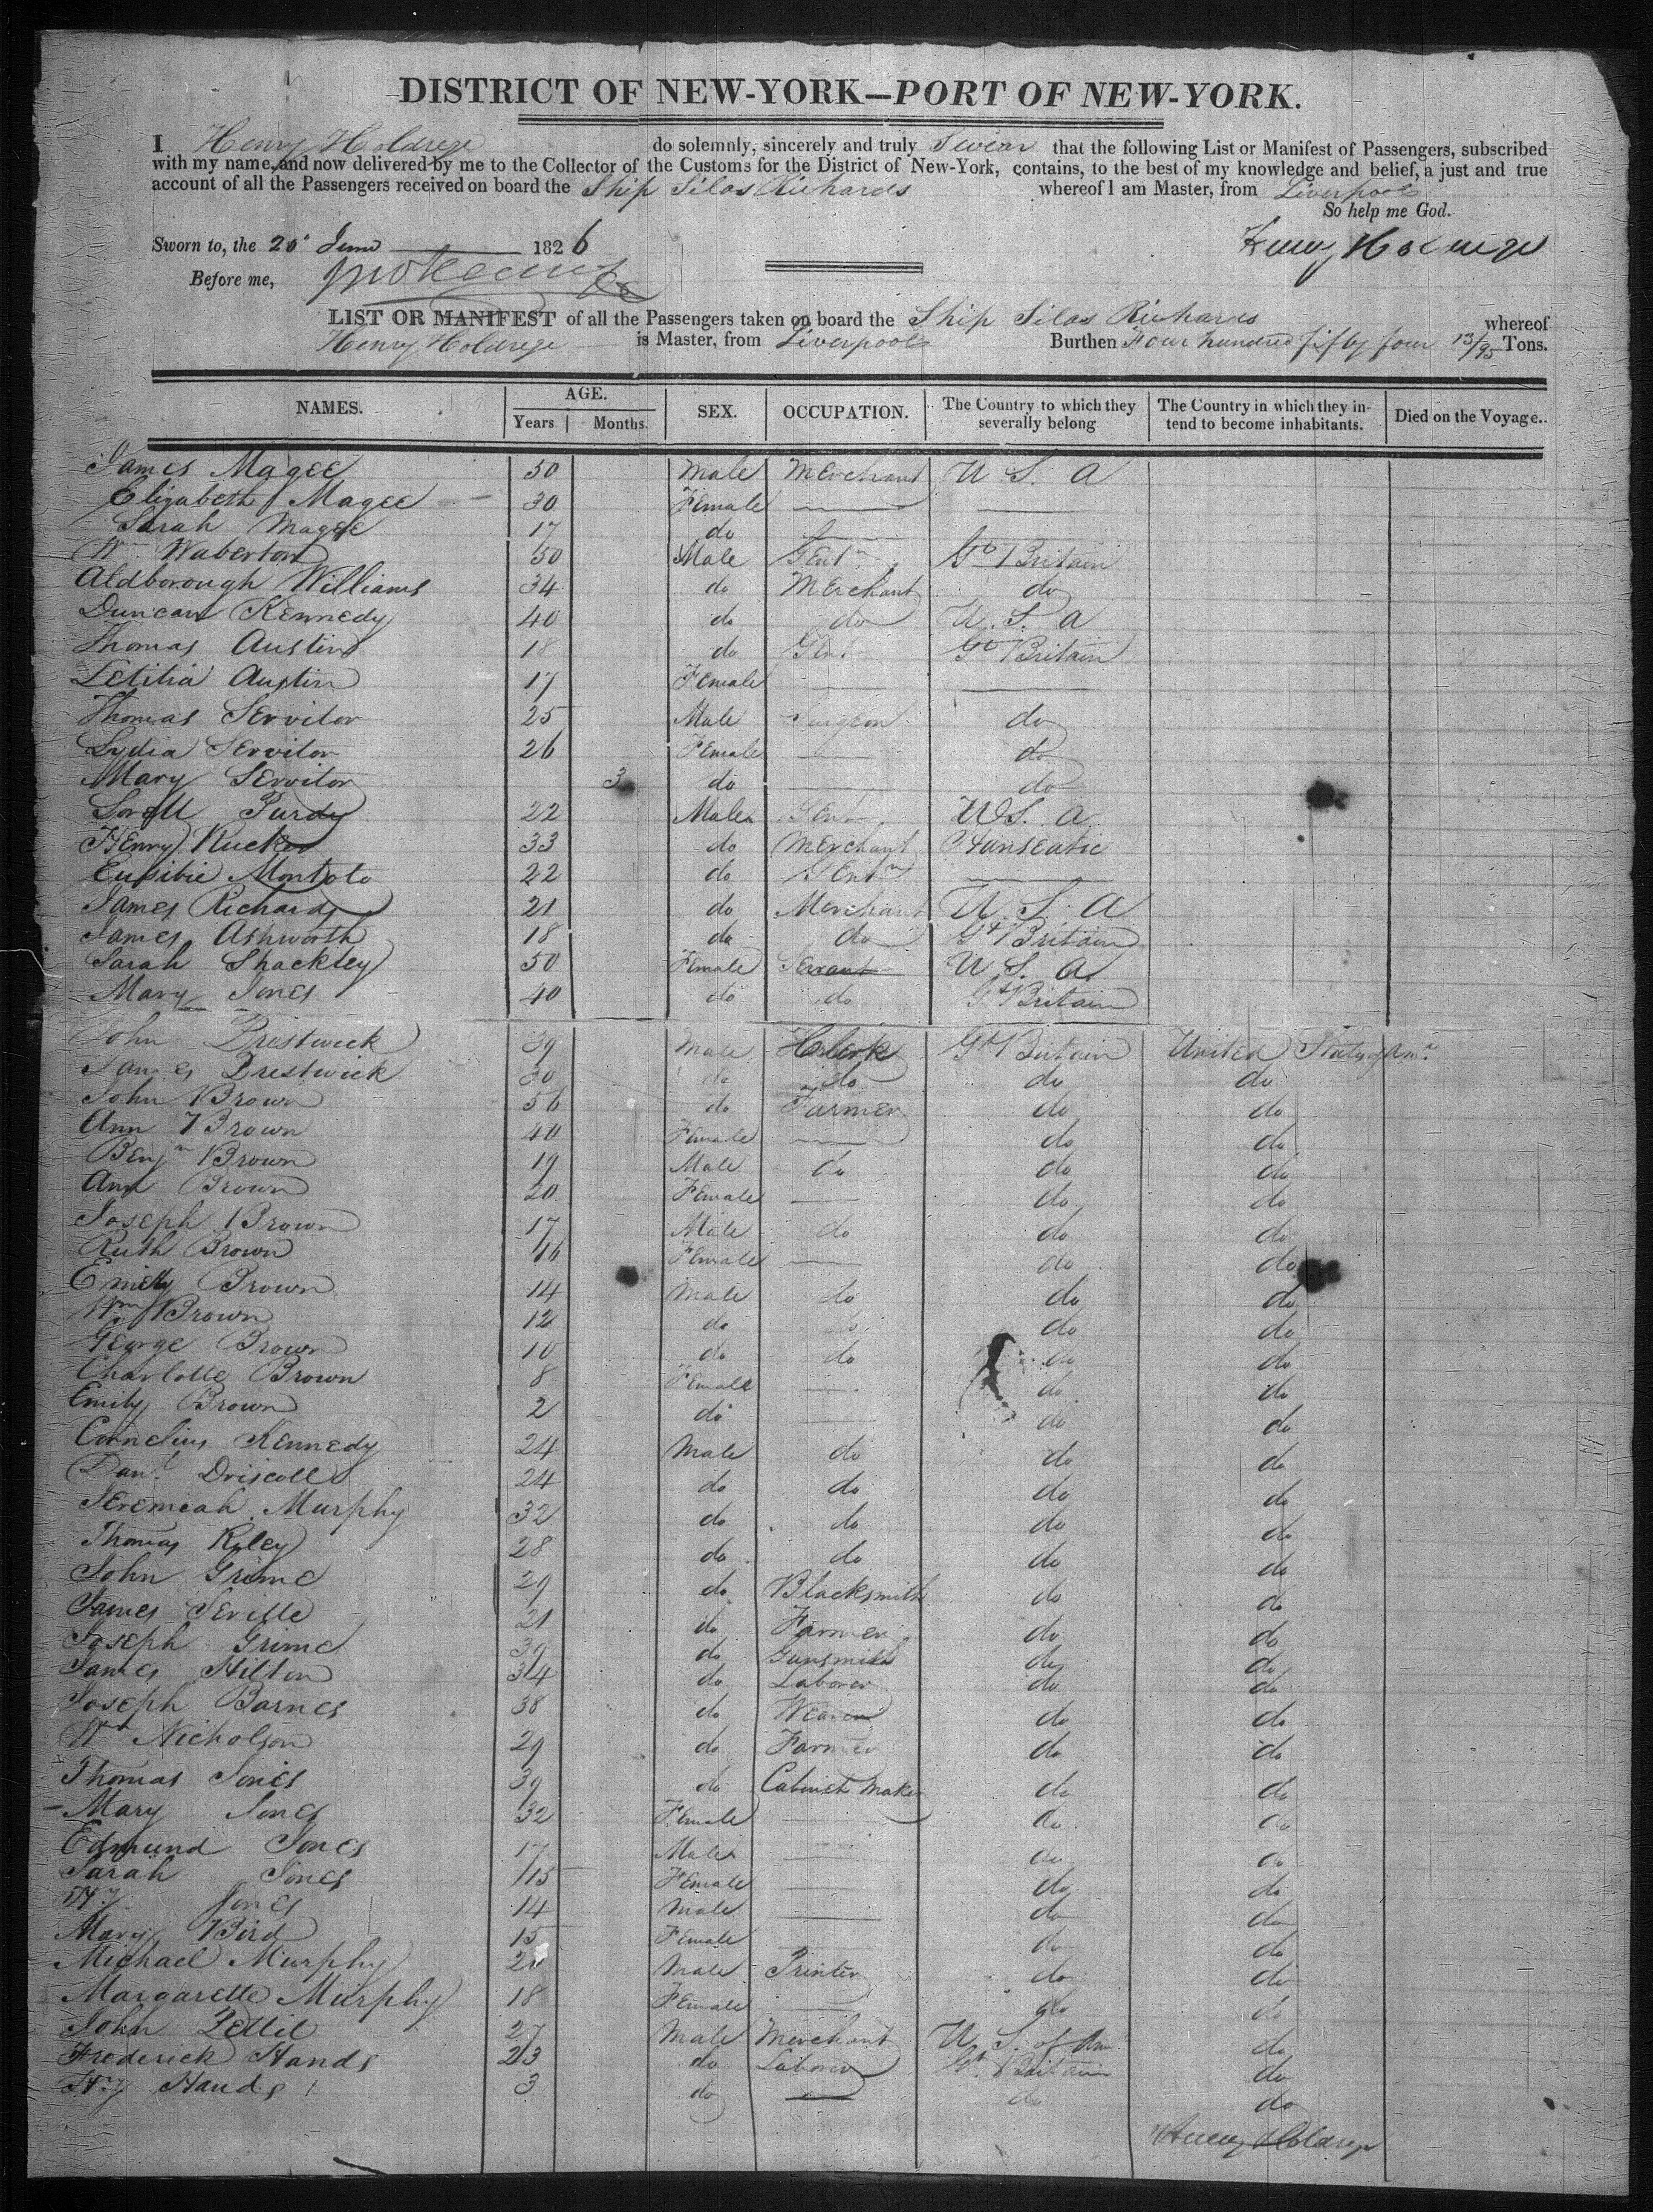 DISTRICT OF NEW-YORK—PORT OF NEW-YORK.
I Henry Holdrege do solemnly, sincerely and truly Swear that the following List or Manifest of Passengers, subscribed
with my name, and now delivered by me to the Collector of the Customs for the District of New-York, contains, to the best of my knowledge and belief, a just and true
account of all the Passengers received on board the Ship Silas Richards whereof I am Master, from Liverpool
So help me God.
Sworn to, the 20 June 1826 Henry Holdrege
Before me,
LIST OR MANIFEST of all the Passengers taken on board the Ship Silas Richards whereof
Henry Holdrege is Master, from Liverpool Burthen Four hundred fifty four 13/95 Tons.
NAMES. AGE. Years Months. SEX. OCCUPATION. The Country to which they severally belong The Country in which they intend to become inhabitants. Died on the Voyage.
James Magee 50 Male Merchant U.S.A
Elizabeth Magee 30 Female
Sarah Magee 17 do
Wm Waberton 50 Male Gentn Gt Britain
Aldborough Williams 34 do Merchant do
Duncan Kennedy 40 do do U.S.A
Thomas Austin 18 do Gent Gt Britain
Letitia Austin 17 Female
Thomas Servitor 25 Male Surgeon do
Lydia Servitor 26 Female do
Mary Servitor 3 do do
Lovell Purdy 22 Male Gent U.S.A
Henry Rucker 33 do Merchant Hanseatic
Eusibie Montoto 22 do Gentn
James Richards 21 do Merchant U.S.A
James Ashworth 18 do do Gt Britain
Sarah Shackley 50 Female Servant U.S.A
Mary Jones 40 do do Gt Britain
John Prestwick 39 Male Clerk Gt Britain United States of Ama
James Prestwick 30 do do do do
John Brown 56 do Farmer do do
Ann Brown 40 Female do do
Benjn Brown 19 Male do do do
Ann Brown 20 Female do do
Joseph Brown 17 Male do do do
Ruth Brown 16 Female do do
Brown 14 Male do do do
Wm Brown 12 do do do do
George Brown 10 do do do do
Charlotte Brown 8 Female do do
Emily Brown 2 do do do
Cornelius Kennedy 24 Male do do do
Danl Driscoll 24 do do do do
Jeremeah Murphy 32 do do do do
Thomas Ryley 28 do do do do
John Grime 29 do Blacksmith do do
James Seville 21 do Farmer do do
Joseph Grime 39 do Gunsmith do do
James Hilton 34 do Laborer do do
Joseph Barnes 38 do Weaver do do
Wm Nicholson 29 do Farmer do do
Thomas Jones 39 do Cabinet Maker do do
Mary Jones 32 Female do do
Edmund Jones 17 Male do do
Sarah Jones 15 Female do do
Hy Jones 14 Male do do
Mary Bird 15 Female do do
Michael Murphy Male Printer do do
Margarette Murphy 18 Female do do
John Pettit 27 Male Merchant U.S. of Am do
Frederick Hands 23 do Laborer Gt Britain do
Hy Hands 3 do do do
Henry Holdrege